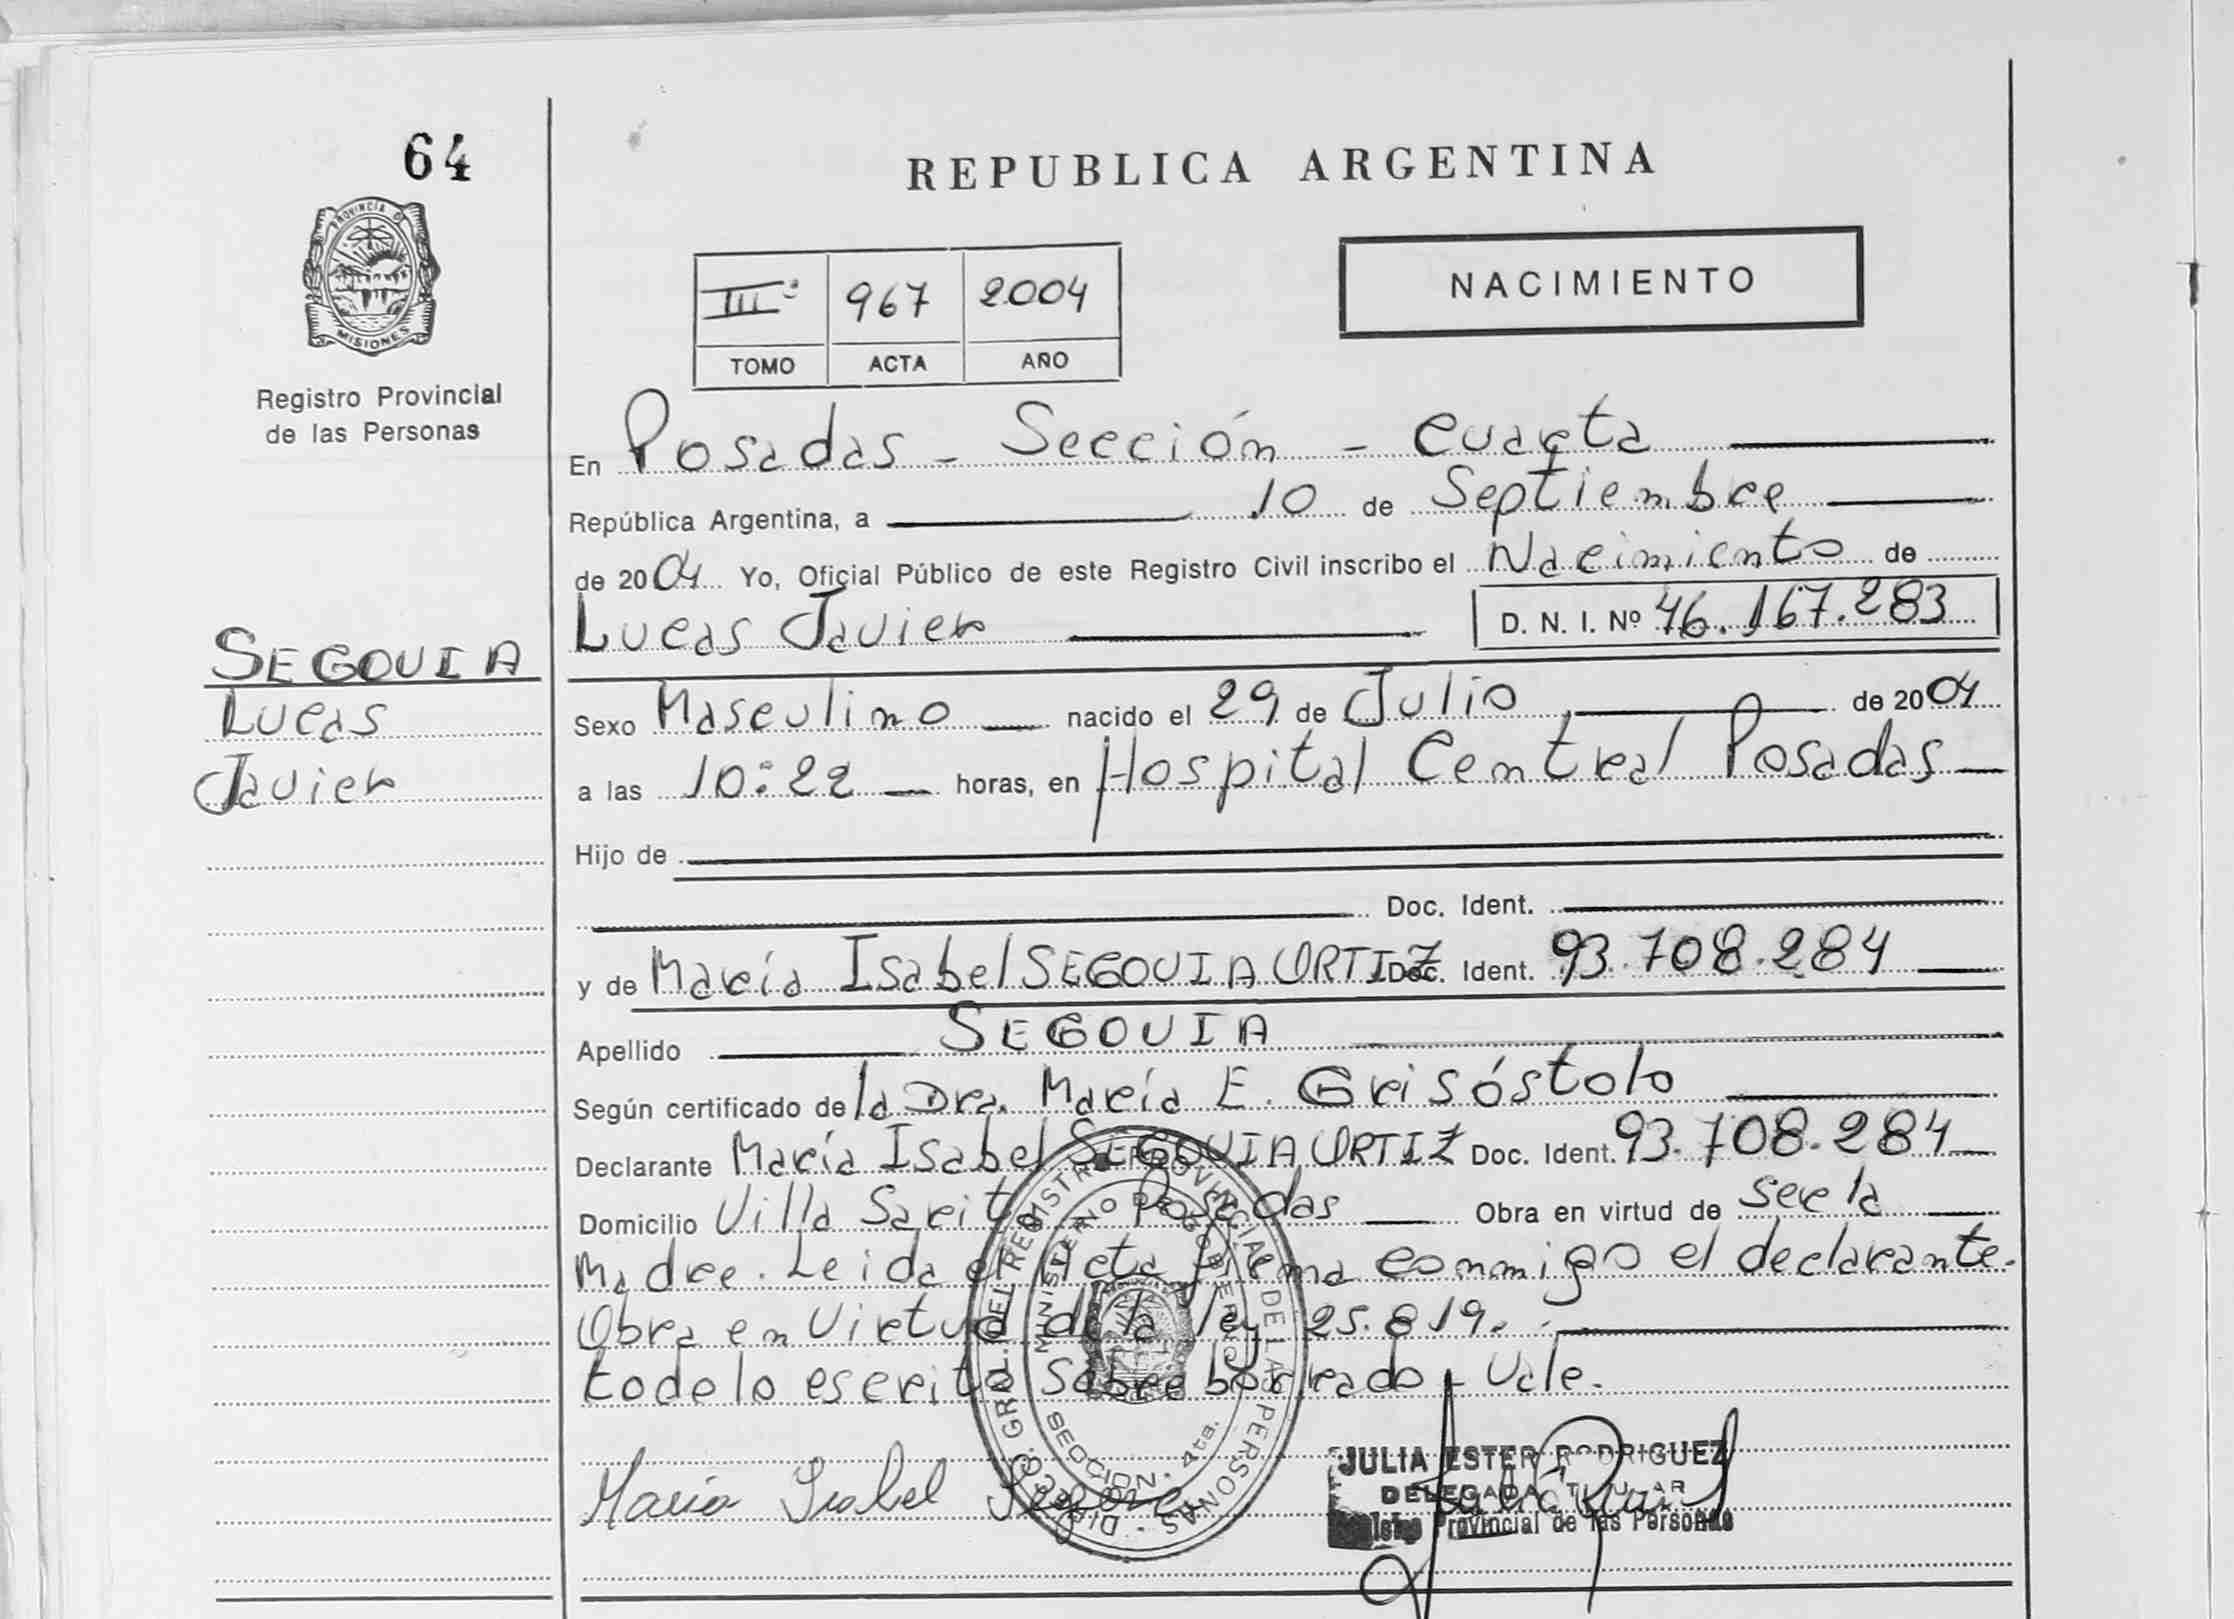 64
REPUBLICA ARGENTINA
PROVINCIA D
MISIONES
Registro Provincial
de las Personas
III 967 2004
TOMO ACTA AÑO
NACIMIENTO
En Posadas - Sección - Cuarta
República Argentina, a 10 de Septiembre
de 2004 Yo, Oficial Público de este Registro Civil inscribo el Nacimiento de
Lucas Javier D. N. I. Nº 46.167.283
SEGOVIA
Lucas
Javier
Sexo Masculino nacido el 29 de Julio de 2004
a las 10:22 horas, en Hospital Central Posadas
Hijo de
Doc. Ident.
y de María Isabel SEGOVIA ORTIZ Doc. Ident. 93.708.284
Apellido SEGOVIA
Según certificado de la Dra. María E. Grisóstolo
Declarante María Isabel SEGOVIA ORTIZ Doc. Ident. 93.708.284
Domicilio Villa Sarita Posadas Obra en virtud de ser la
Madre. Leida el Acta firma conmigo el declarante.
Obra en Virtud de la ley 25.819.
todo lo escrito sobre borreado - Vale.
DIRECC. GRAL. DEL REGISTRO PROVINCIAL DE LAS PERSONAS
MINISTERIO DE GOBIERNO
SECCION 4ta.
María Isabel
JULIA ESTER RODRIGUEZ
DELEGADA TITULAR
Registro Provincial de las Personas